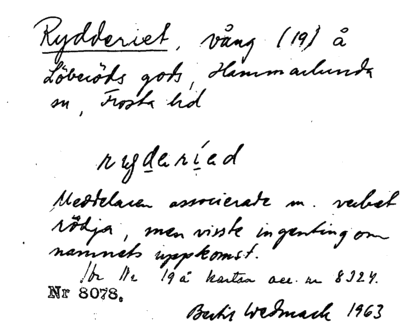 Rydderiet, vång (19) å
Löberöds gods, Hammarlunda
sn, Frosta hd
ryderied
Meddelaren associerade m. verbet
rödja, men visste ingenting om
namnets uppkomst.
Nr 19 å kartan acc. nr 8324.
Nr 8078.
Bertil Wedmark 1963